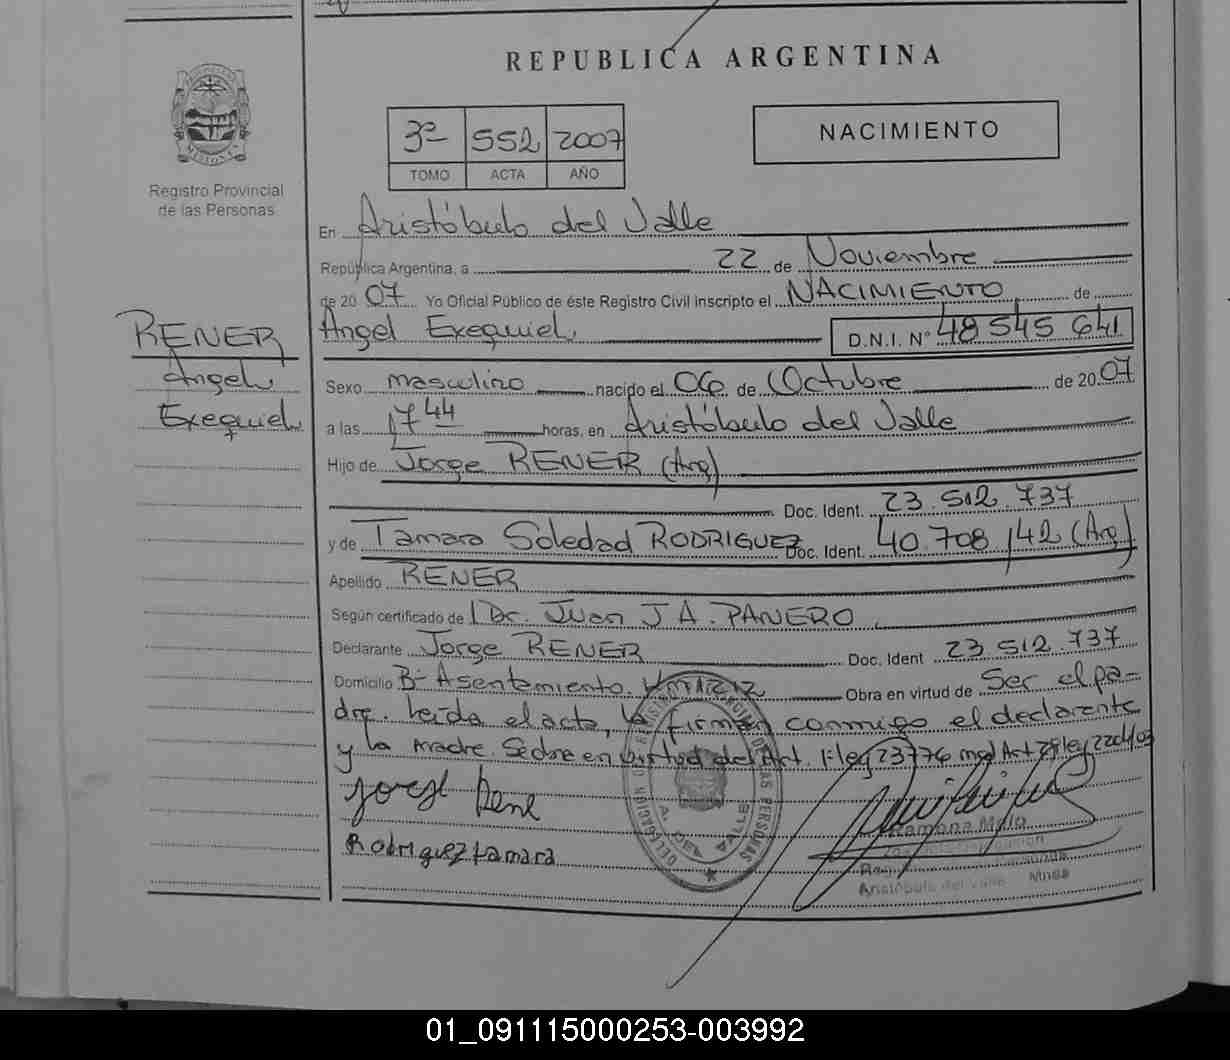 REPUBLICA ARGENTINA
MISIONES
3º 552 2007
TOMO ACTA AÑO
NACIMIENTO
Registro Provincial
de las Personas
En Aristóbulo del Valle
República Argentina, a 22 de Noviembre
de 2007 Yo Oficial Público de éste Registro Civil inscripto el NACIMIENTO de
Angel Exequiel D.N.I. Nº 48 545 641
RENER
Angel
Exequiel
Sexo masculino nacido el 06 de Octubre de 2007
a las 17 44 horas, en Aristóbulo del Valle
Hijo de Jorge RENER (Arg)
Doc. Ident. 23.512.737
y de Tamara Soledad RODRIGUEZ Doc. Ident. 40.708.142 (Arg)
Apellido RENER
Según certificado de Dr. Juan J A. PANERO
Declarante Jorge RENER Doc. Ident 23 512.737
Domicilio Bº Asentamiento Obra en virtud de Ser el pa-
dre. Leída el acta, la firman conmigo el declarante
y la madre. Se obra en virtud del Art. 1º ley 23776 mod Art 2º ley
Jorge Rene
Rodriguez tamara
DELEGACIÓN DE REGISTRO PROVINCIAL DE LAS PERSONAS
A. DEL VALLE
Ramona Melo
Aristóbulo del Valle Mnes
01_091115000253-003992